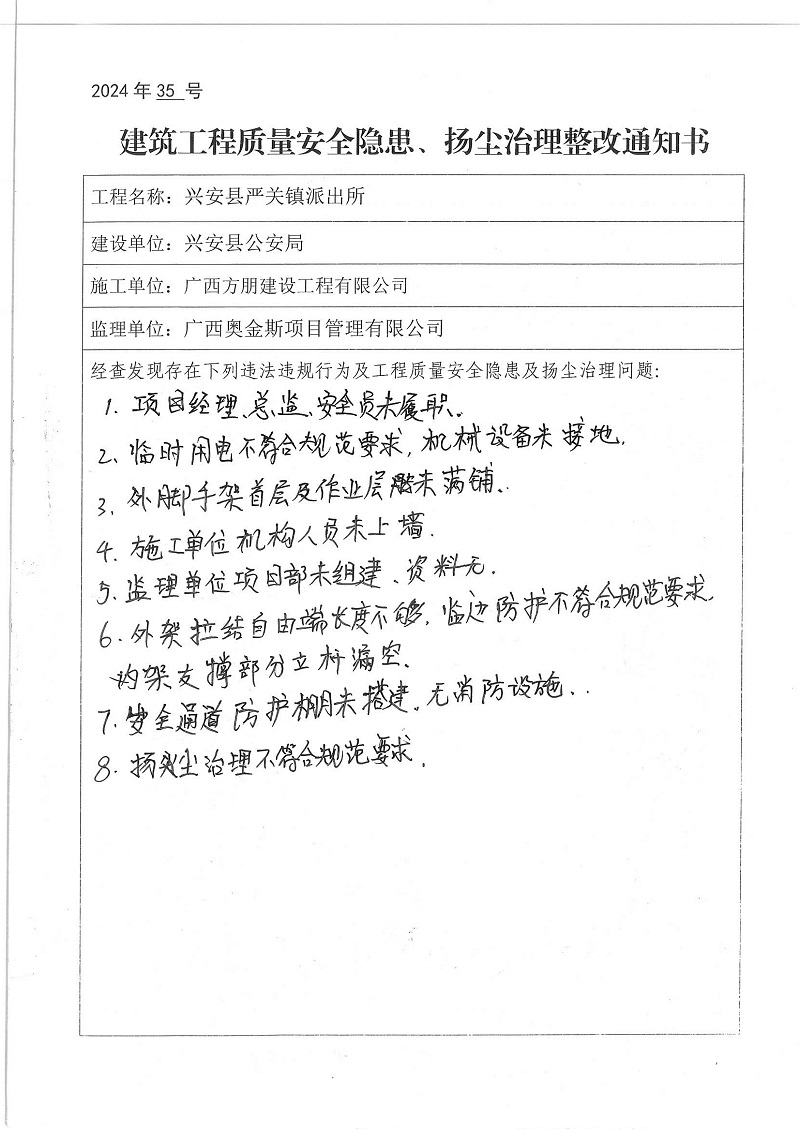 2024 年 35 号
建筑工程质量安全隐患、扬尘治理整改通知书
工程名称：兴安县严关镇派出所
建设单位：兴安县公安局
施工单位：广西方朋建设工程有限公司
监理单位：广西奥金斯项目管理有限公司
经查发现存在下列违法违规行为及工程质量安全隐患及扬尘治理问题：
1. 项目经理、总监、安全员未履职。
2、临时用电不符合规范要求，机械设备未接地.
3. 外脚手架首层及作业层未满铺.
4. 施工单位机构人员未上墙.
5. 监理单位项目部未组建、资料无.
6. 外架拉结自由端长度不够，临边防护不符合规范要求.
内架支撑部分立杆漏空.
7. 安全通道防护棚未搭建. 无消防设施.
8. 扬尘治理不符合规范要求.